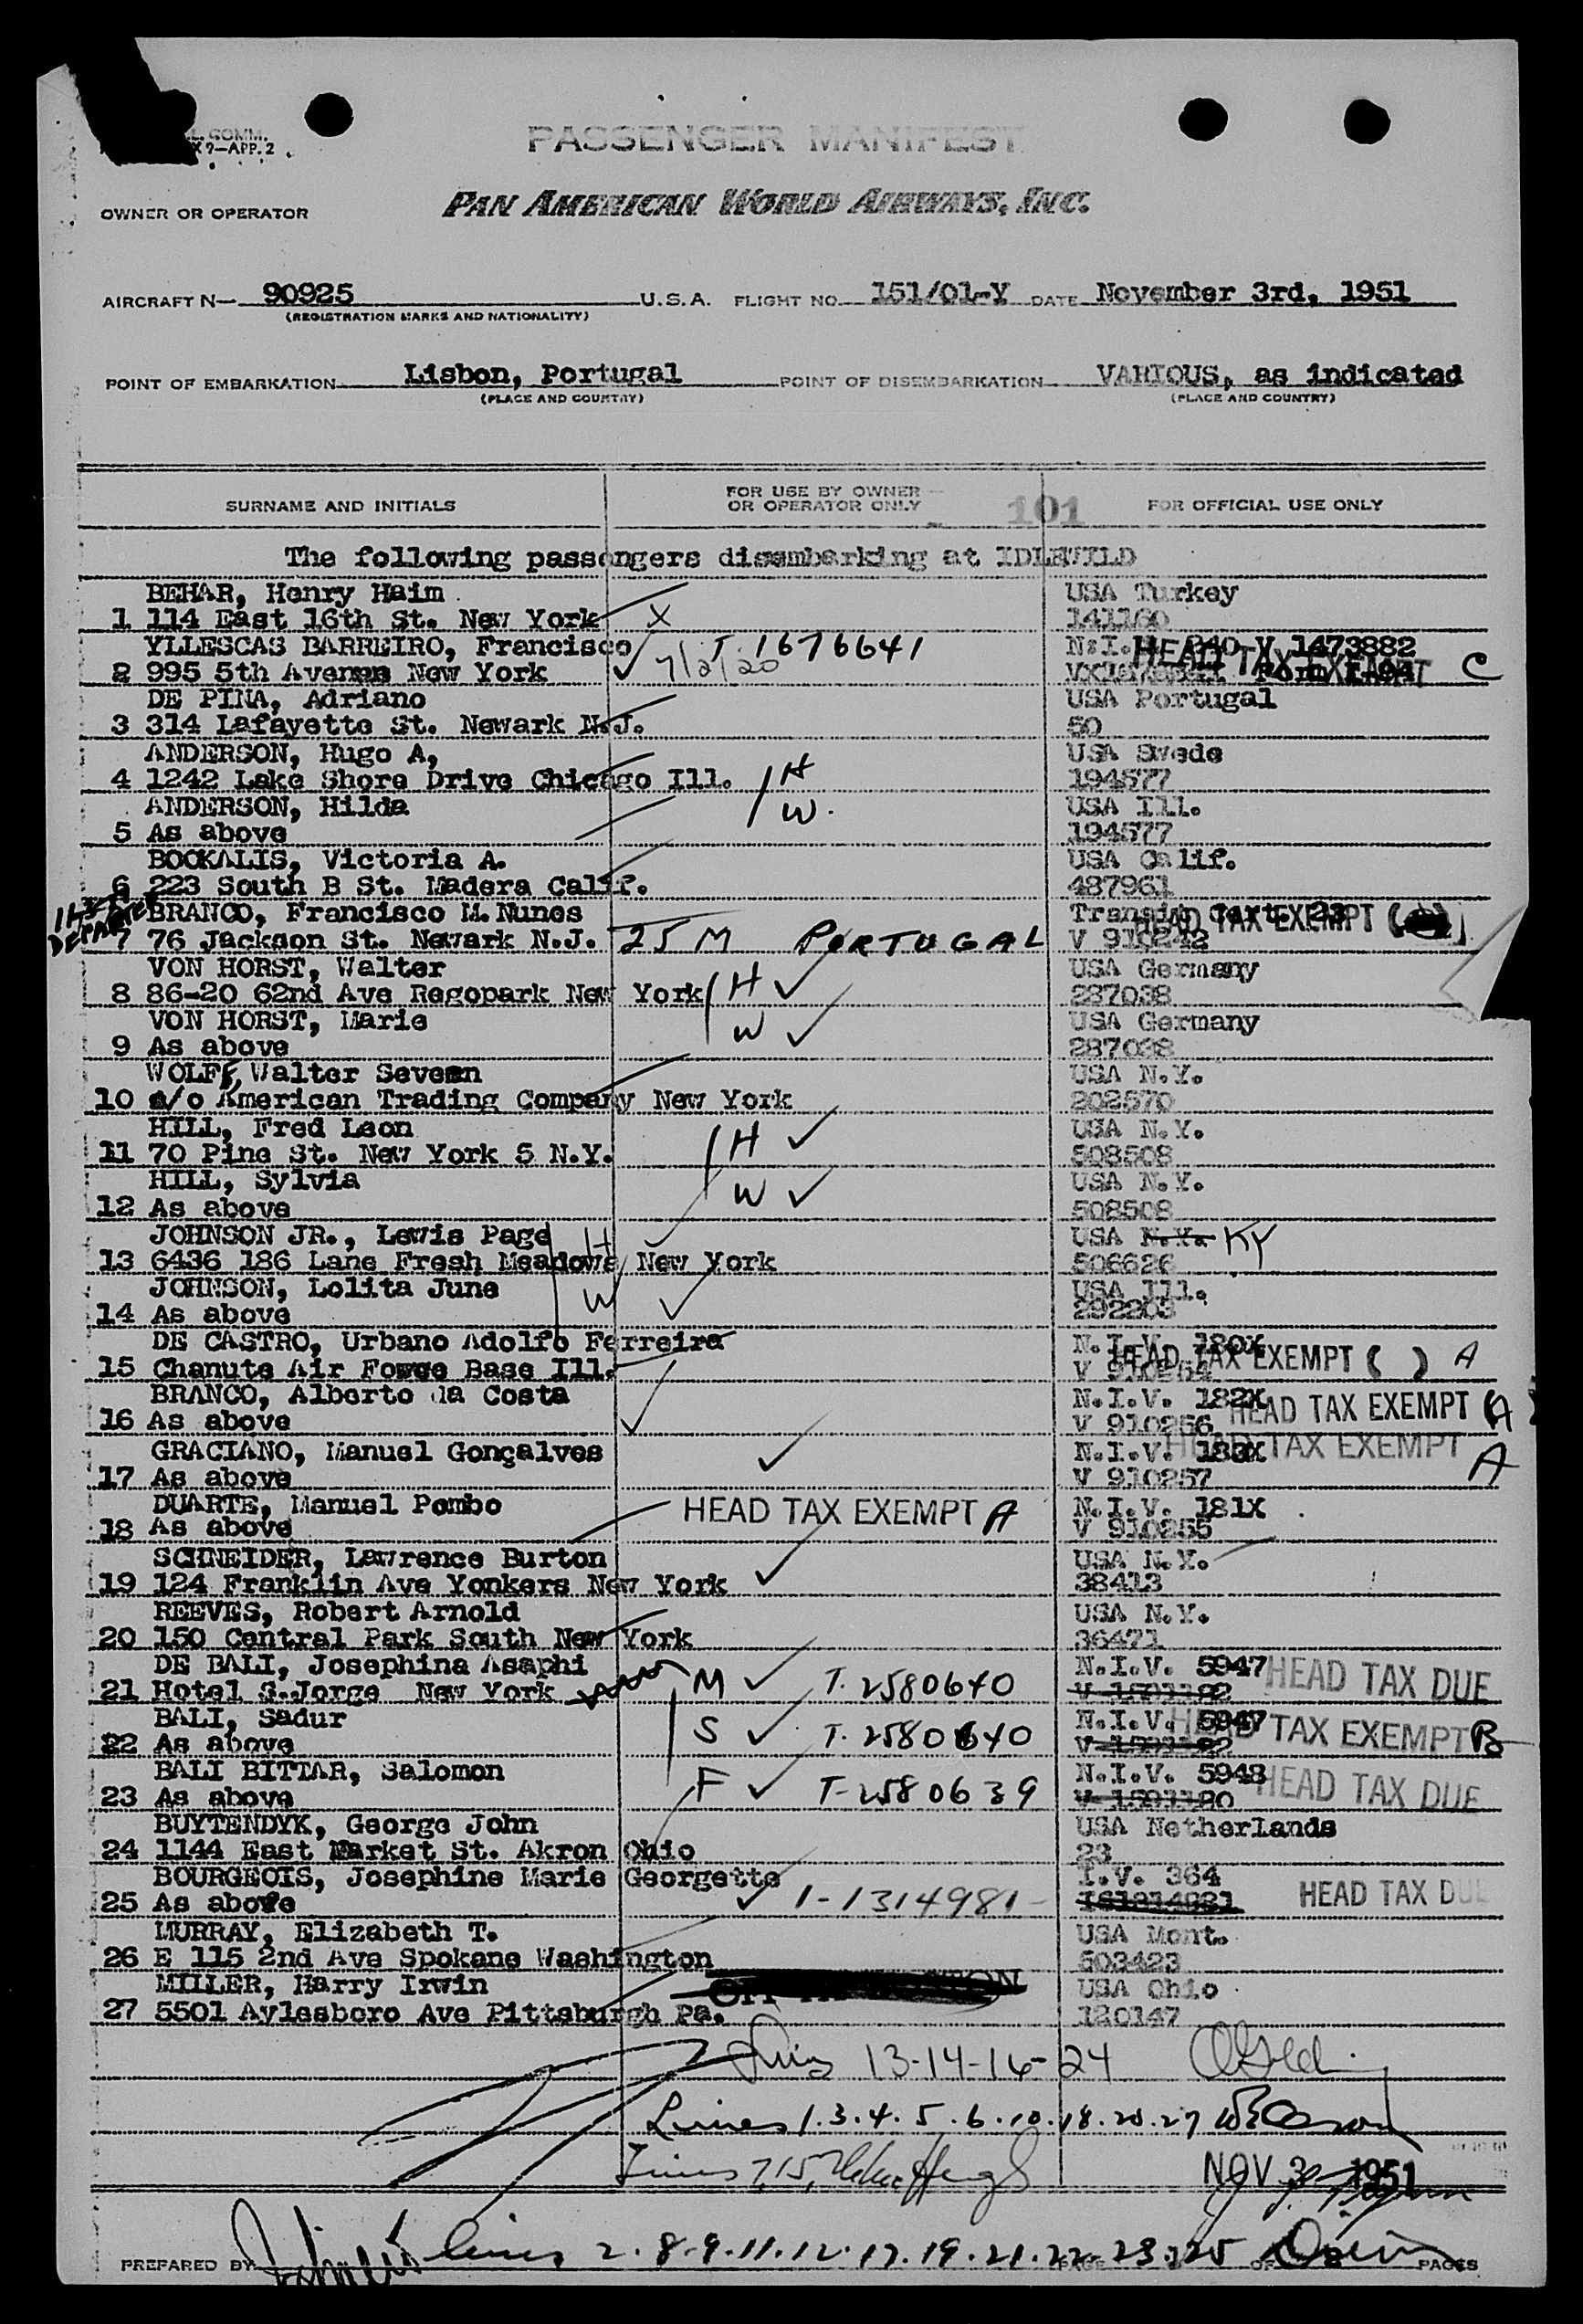 L. COMM.
X 9—APP. 2
PASSENGER MANIFEST
OWNER OR OPERATOR PAN AMERICAN WORLD AIRWAYS, INC.
AIRCRAFT N— 90925 U.S.A. FLIGHT NO. 151/01-Y DATE November 3rd, 1951
(REGISTRATION MARKS AND NATIONALITY)
POINT OF EMBARKATION Lisbon, Portugal POINT OF DISEMBARKATION VARIOUS, as indicated
(PLACE AND COUNTRY) (PLACE AND COUNTRY)
SURNAME AND INITIALS FOR USE BY OWNER OR OPERATOR ONLY 101 FOR OFFICIAL USE ONLY
The following passengers disembarking at IDLEWILD
BEHAR, Henry Haim USA Turkey
1 114 East 16th St. New York X 141160
YLLESCAS BARREIRO, Francisco T. 1676641 N.I. V 1473882
2 995 5th Avenue New York 7/2/20 HEAD TAX EXEMPT C
DE PINA, Adriano USA Portugal
3 314 Lafayette St. Newark N.J. 50
ANDERSON, Hugo A, USA Swede
4 1242 Lake Shore Drive Chicago Ill. H 194577
ANDERSON, Hilda W. USA Ill.
5 As above 194577
BOOKALIS, Victoria A. USA Calif.
6 223 South B St. Madera Calif. 487961
BRANCO, Francisco M. Nunes Transit Cert. 23 HEAD TAX EXEMPT
7 76 Jackson St. Newark N.J. 25 M PORTUGAL V 910242
VON HORST, Walter USA Germany
8 86-20 62nd Ave Regopark New York H 287038
VON HORST, Marie USA Germany
9 As above W 287038
WOLFF, Walter Seveen USA N.Y.
10 c/o American Trading Company New York 202570
HILL, Fred Leon USA N.Y.
11 70 Pine St. New York 5 N.Y. H 508508
HILL, Sylvia USA N.Y.
12 As above W 508508
JOHNSON JR., Lewis Page H USA N.Y. KY
13 6436 186 Lane Fresh Meadows New York 506626
JOHNSON, Lolita June W USA Ill.
14 As above 292203
DE CASTRO, Urbano Adolfo Ferreira N.I.V. 180X
15 Chanute Air Force Base Ill. V 910254 HEAD TAX EXEMPT ( ) A
BRANCO, Alberto da Costa N.I.V. 182X
16 As above V 910256 HEAD TAX EXEMPT A
GRACIANO, Manuel Gonçalves N.I.V. 183X HEAD TAX EXEMPT
17 As above V 910257 A
DUARTE, Manuel Pombo HEAD TAX EXEMPT A N.I.V. 181X
18 As above V 910255
SCHNEIDER, Lawrence Burton USA N.Y.
19 124 Franklin Ave Yonkers New York 38413
REEVES, Robert Arnold USA N.Y.
20 150 Central Park South New York 36471
DE BALI, Josephina Asaphi N.I.V. 5947 HEAD TAX DUE
21 Hotel S.Jorge New York M T. 2580640
BALI, Sadur N.I.V. 5947 HEAD TAX EXEMPT B
22 As above S T. 2580640
BALI BITTAR, Salomon N.I.V. 5948 HEAD TAX DUE
23 As above F T-2580639
BUYTENDYK, George John USA Netherlands
24 1144 East Market St. Akron Ohio 23
BOURGEOIS, Josephine Marie Georgette I.V. 364
25 As above 1-1314981 HEAD TAX DUE
MURRAY, Elizabeth T. USA Mont.
26 E 115 2nd Ave Spokane Washington 503423
MILLER, Harry Irwin USA Ohio
27 5501 Aylesboro Ave Pittsburgh Pa. 120147
Lines 13-14-16-24
Lines 1.3.4.5.6.10.18.20.27
Lines 7,15,
NOV 3 1951
PREPARED BY lines 2.8.9.11.12.17.19.21.22.23.25 PAGE OF 2 PAGES